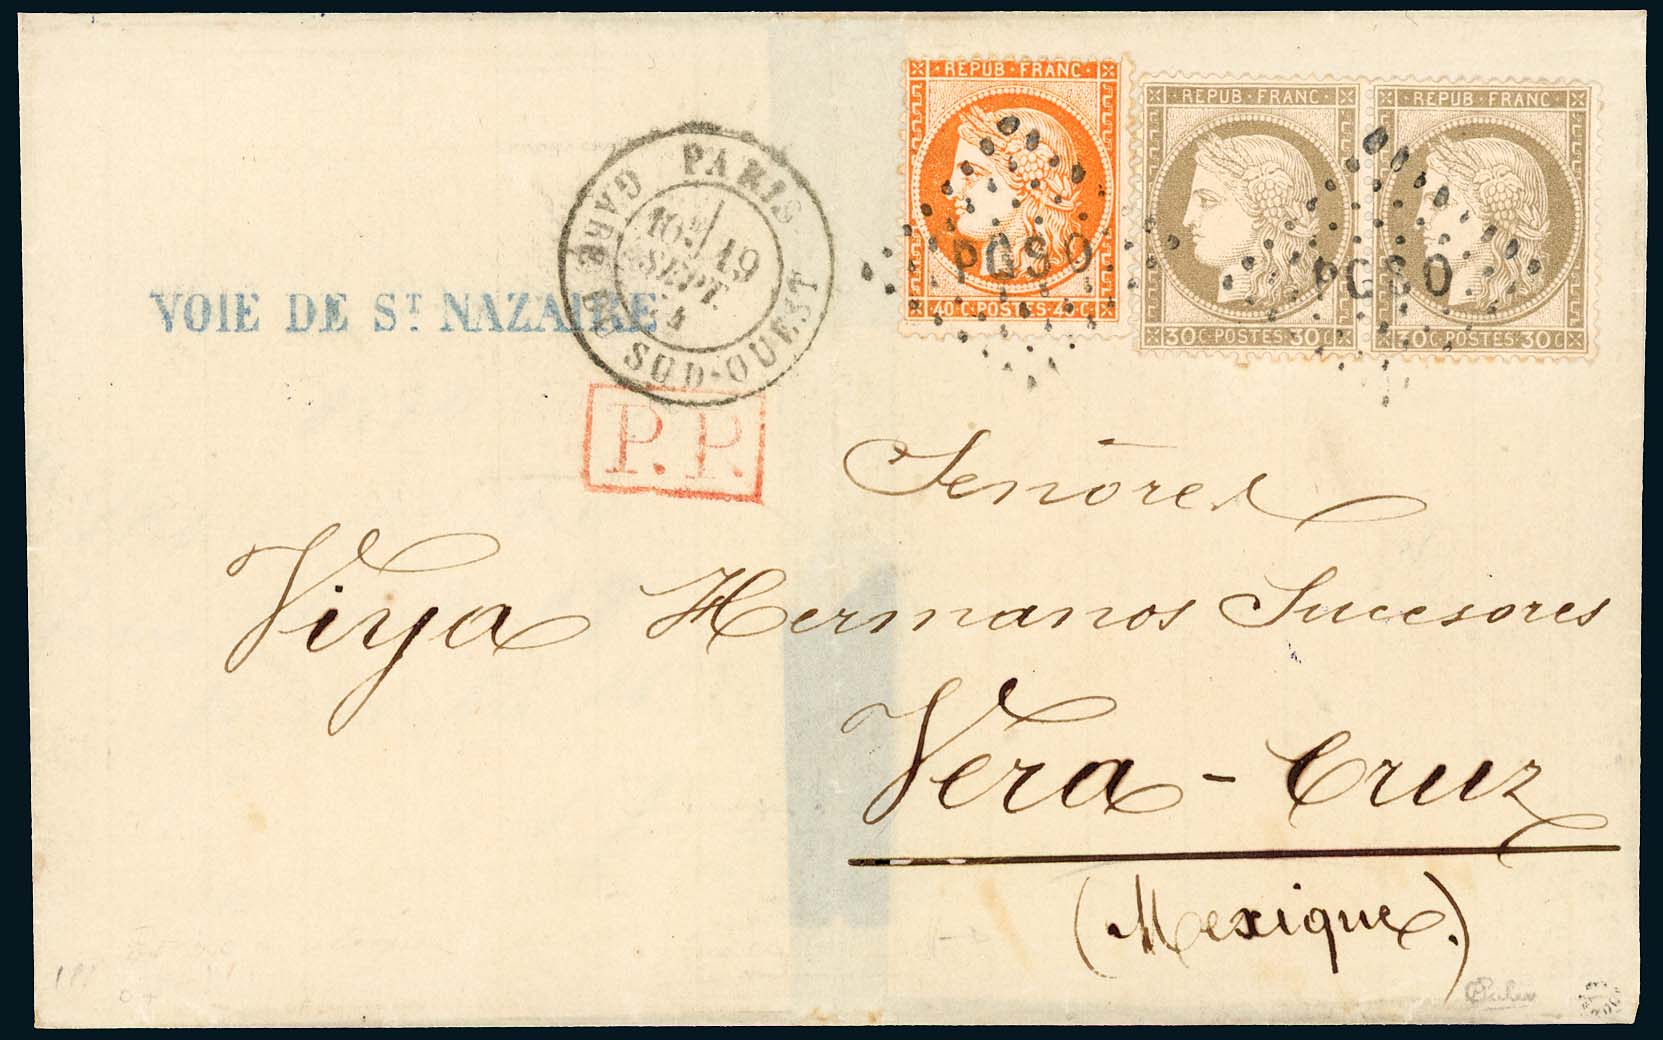 REPUB · FRANC
REPUB · FRANC
REPUB · FRANC
PGSO
PGSO
40 C · POSTES · 40 C
30 C · POSTES · 30 C
30 C · POSTES · 30 C
GARE PARIS SUD-OUEST
19
SEPT.
VOIE DE ST NAZAIRE
P.P.
Señores
Viya Hermanos Sucesores
Vera-Cruz
(Mexique.)